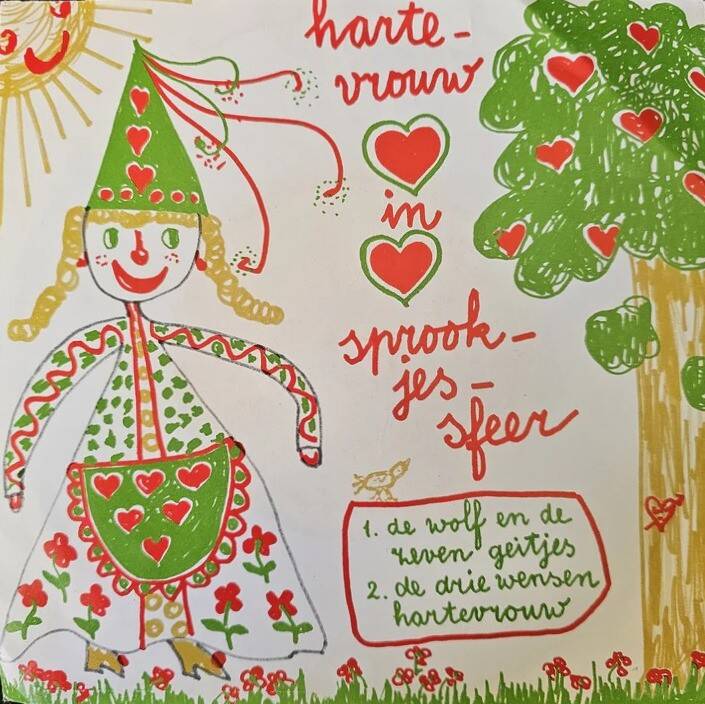 harte-
vrouw
in
sprook-
jes-
sfeer
1. de wolf en de
zeven geitjes
2. de drie wensen
hartevrouw